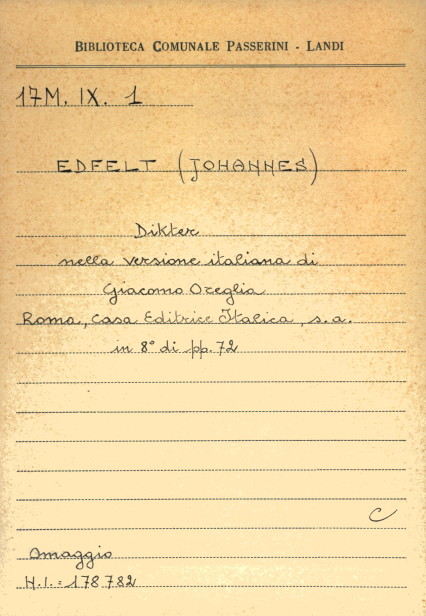 BIBLIOTECA COMUNALE PASSERINI - LANDI
17M. IX. 1
EDFELT (JOHANNES)
Dikter
nella versione italiana di
Giacomo Oreglia
Roma, Casa Editrice Italica, s.a.
in 8° di pp. 72
C
Omaggio
H.I.= 178782